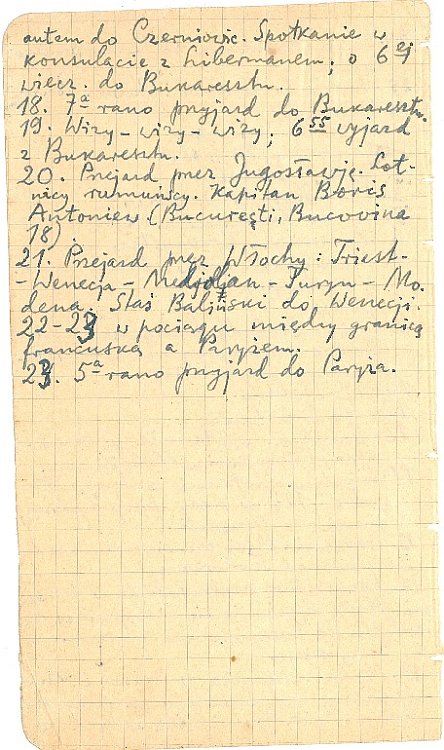 autem do Czerniowic. Spotkanie w
konsulacie z Libermanem, o 6 ej
wiecz. do Bukaresztu.
18. 7ª rano przyjazd do Bukaresztu.
19. Wizy - wizy - wizy, 6 55 wyjazd
z Bukaresztu.
20. Przejazd przez Jugosławię. Lot-
nicy rumuńscy. Kapitan Boris
Antoniew (Bucureşti, Bucovina
18)
21. Przejazd przez Włochy: Triest-
- Wenecja - Medjoljan - Turyn - Mo-
dena. Staś Baliński do Wenecji.
22-23 w pociągu między granicą
francuską a Paryżem.
23. 5ª rano przyjazd do Paryża.